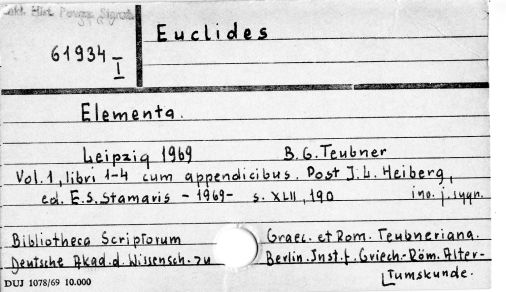 Inst. Hist. Powsz. Signat.
Euclides
61934
I
Elementa.
Leipzig 1969 B.G. Teubner
Vol. 1, libri 1-4 cum appendicibus. Post J.L. Heiberg,
ed. E.S. Stamaris - 1969- s. XLII, 190
Bibliotheca Scriptorum Graec. et Rom. Teubneriana.
Deutsche Akad. d. Wissensch. zu Berlin. Inst. f. Griech.-Röm. Alter-
tumskunde.
DUJ 1078/69 10.000